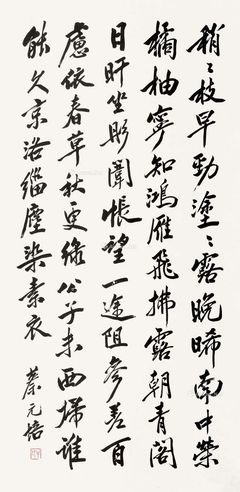 稍稍枝早劲塗塗露晚晞南中榮
橘柚寧知鴻雁飛拂露朝青閣
日旰坐彤闈悵望一途阻參差百
慮依春草秋更綠公子未西歸誰
能久京洛緇塵染素衣
蔡元培